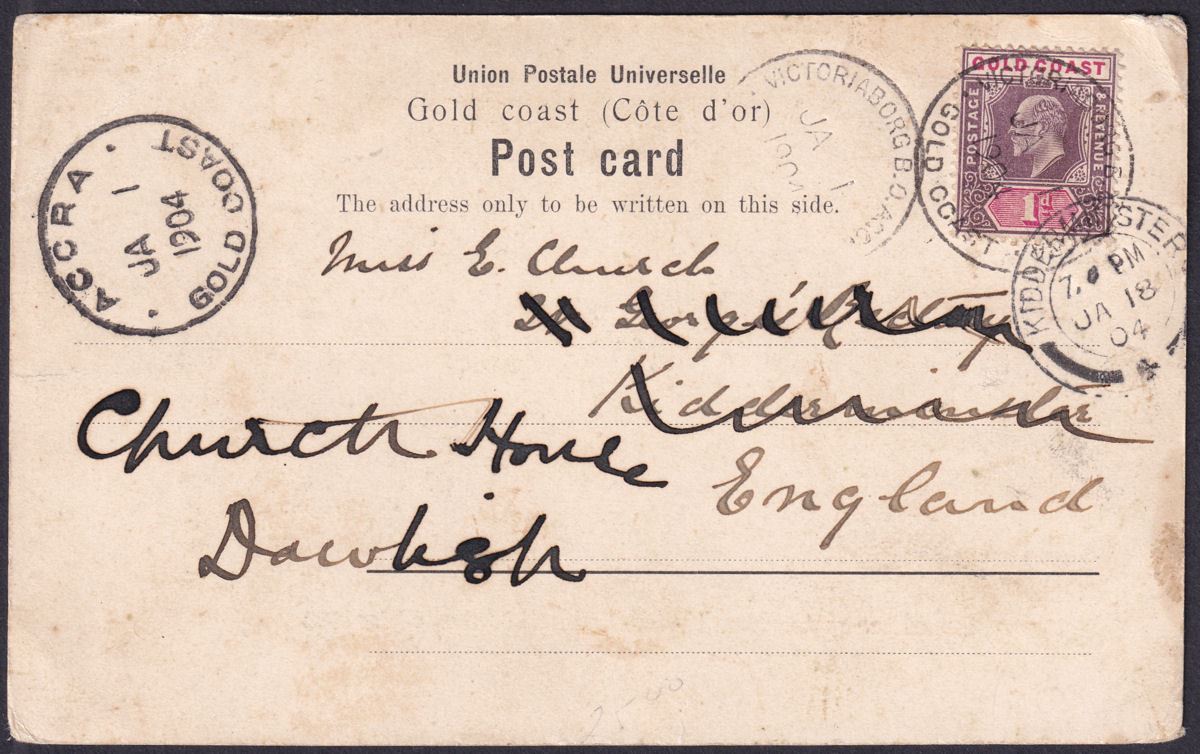 Union Postale Universelle
Gold coast (Côte d'or)
Post card
The address only to be written on this side.
ACCRA
JA 1
1904
GOLD COAST
VICTORIABORG B.O. ACC
JA 1
GOLD COAST
POSTAGE
& REVENUE
1d
VICTORI
GOLD COAST
KIDDERMINSTER
7. PM
JA 18
04
Miss E. Church
St George's
Kidderminster
England
Church House
Dawlish
25.00